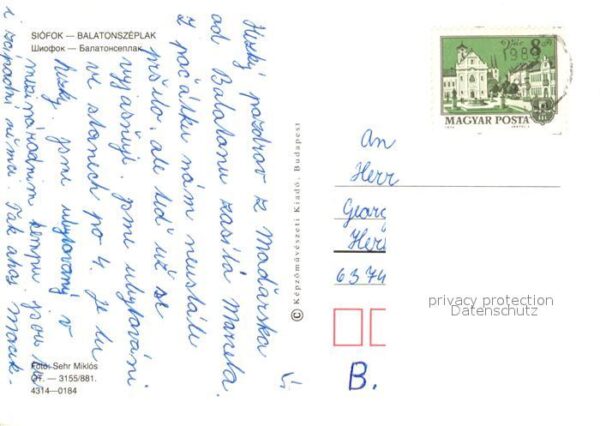 SIÓFOK — BALATONSZÉPLAK
Шиофок — Балатонсеплак
Hezký pozdrav z Maďarska
od Balatonu zasílá Marcela.
Z počátku nám neustále
pršelo, ale teď už se
vyjasňuje. Jsme ubytováni
ve stanech po 4. Je tu
hezky. Jsme ubytovaný v
mezinárodním kempu. Jsou tu
i západní němci. Tak ahoj
Foto: Sehr Miklós
3155/881.
4314—0184
© Képzőművészeti Kiadó, Budapest
8
MAGYAR POSTA
An
Herr
Georg
Her
6374
B.
privacy protection
Datenschutz